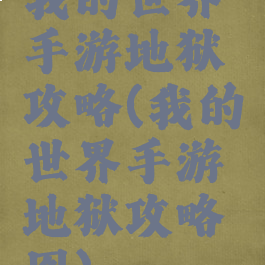 我的世界
手游地狱
攻略(我的
世界手游
地狱攻略
图)